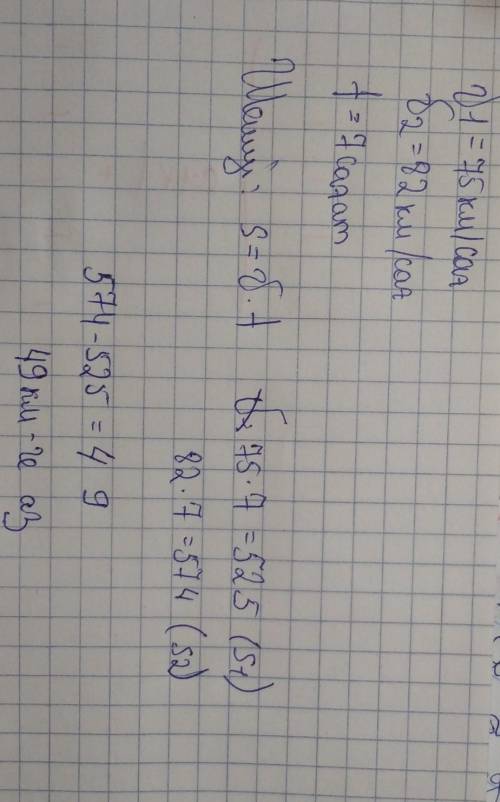 υ1 = 75 км/сағ
υ2 = 82 км/сағ
t = 7 сағат
Шешуі: S = υ · t
75 · 7 = 525 (S1)
82 · 7 = 574 (S2)
574 - 525 = 49
49 км-ге аз